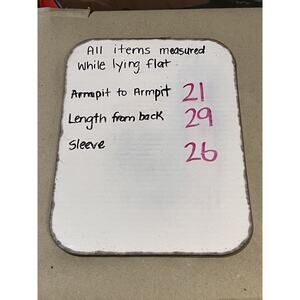 All items measured
while lying flat
Armpit to Armpit 21
Length from back 29
Sleeve 26